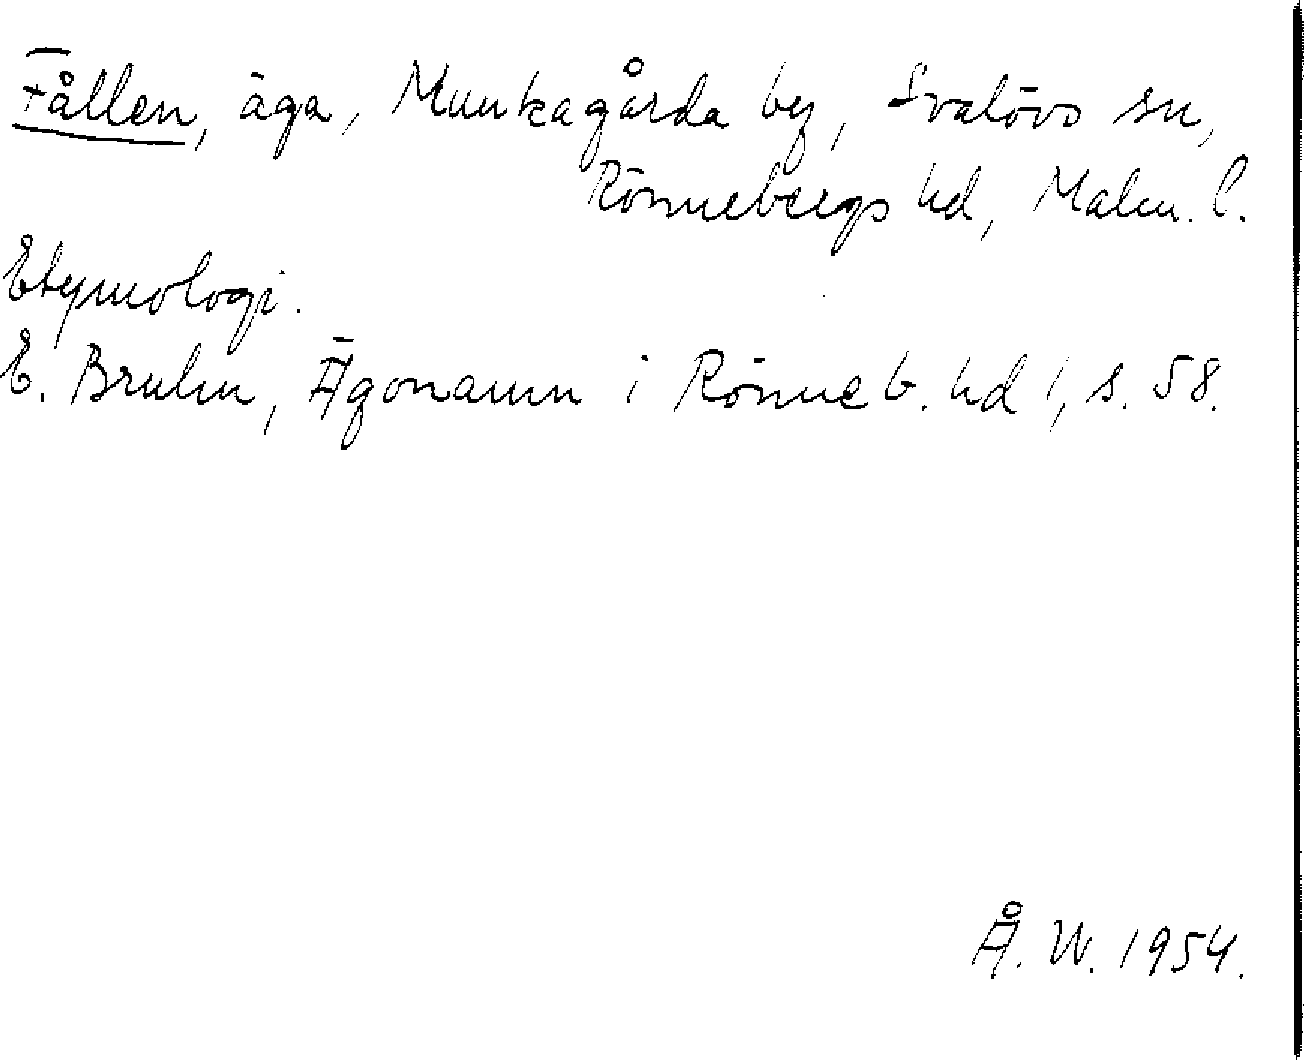 Fållen, äga, Munkagårda by, Svalövs sn,
Rönnebergs hd, Malm. l.
Etymologi.
E. Bruhn, Ägonamn i Rönneb. hd 1, s. 58.
Å. W. 1954.